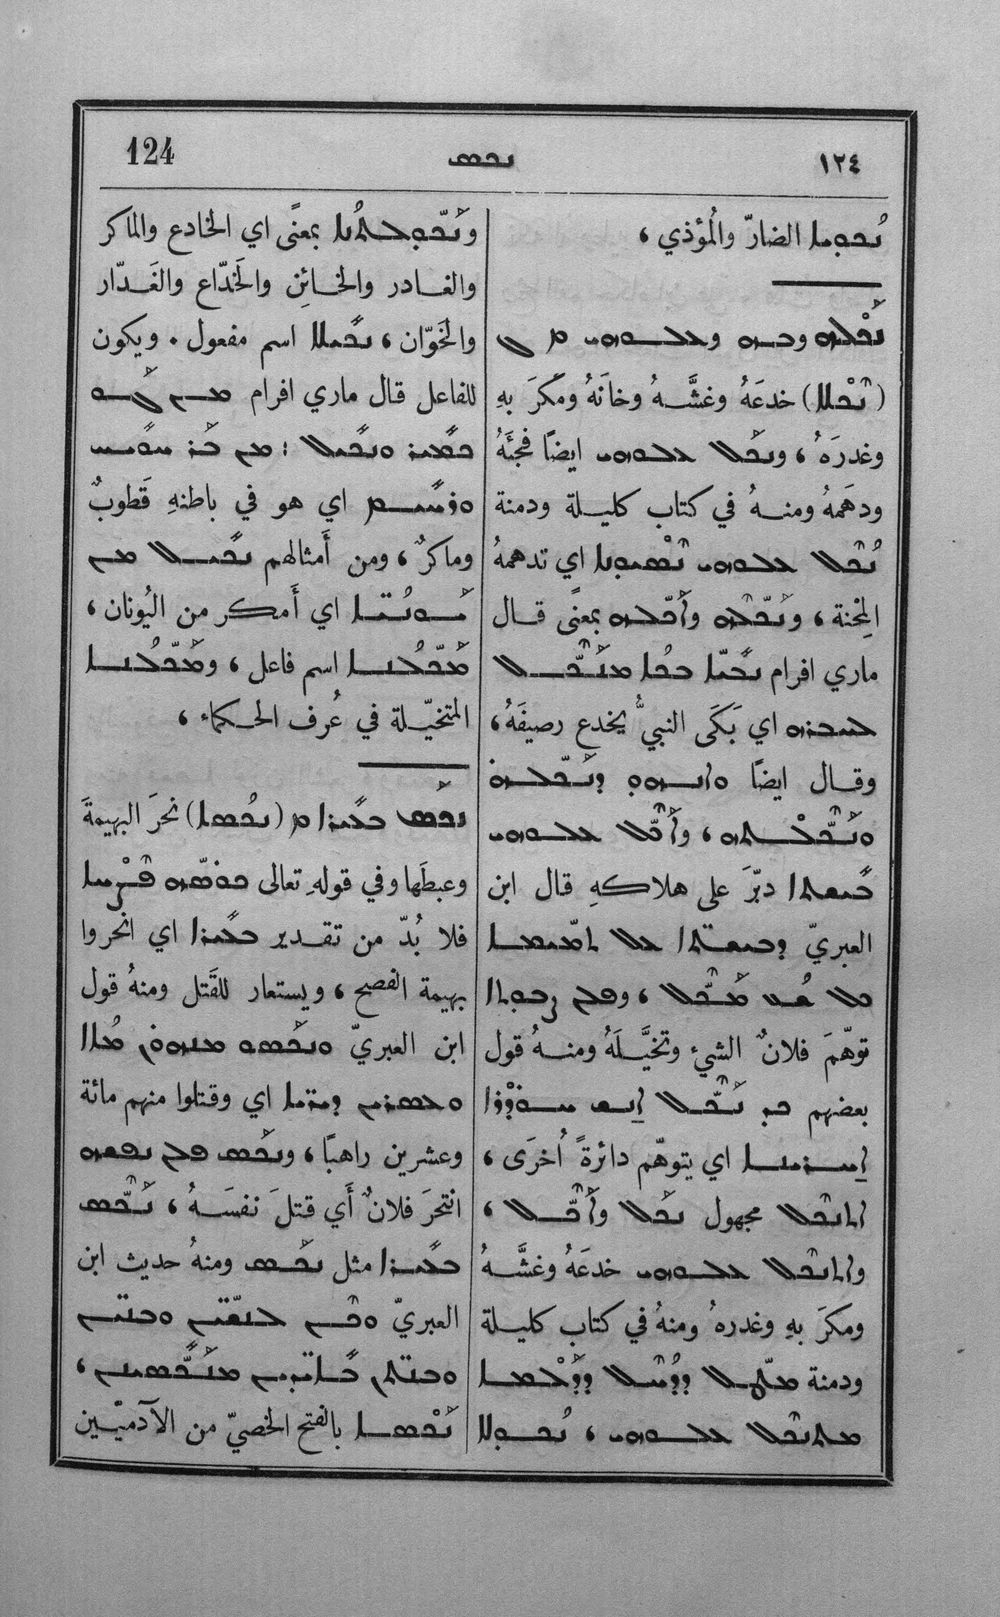 ١٢٤ ܢܟܣ 124
ܢܟܘܝܐ الضارّ والمُؤذي ،
ܢܟܠܗ ܘܒܗ ܘܥܠܘܗܝ
(ܢܟܠܐ) خدعَهُ وغشَّـهُ وخانَهُ ومَكرَ بهِ
وغدرَهُ ، ܘܢܟܠ ܥܠܘܗܝ ايضًا فجئَهُ
ودهَمهُ ومنـهُ في كتاب كليلة ودمنة
ܢܟܠ ܥܠܘܗܝ ܢܣܝܘܢܐ اي تدهمهُ
المِحنة ، ܘܢܟܠܗ ܘܐܟܠܗ بمعنًى قـال
ماري افرام ܢܒܝܐ ܒܟܐ ܡܢܟܠ
ܠܚܒܪܗ اي بَكَى النبيُّ يخدع رصيفَهُ ،
وقـال ايضًا
ܘܐܟܠ ܥܠܘܗܝ
ܒܝܫܬܐ دبّرَ على هلاكهِ قال ابن
العبريّ ܕܒܝܫܬܐ ܥܠ
توهّمَ فلانٌ الشيء وتخيَّلَهُ ومنـهُ قول
بعضهم ܟܕ ܢܟܠ ܐܝܟ ܚܘܕܪܐ
ܐܚܪܢܐ اي يتوهّم دائرةً أُخرَى ،
ܐܬܢܟܠ مجهول ܢܟܠ ܘܐܟܠ ،
ܘܐܬܢܟܠ ܥܠܘܗܝ خدعَهُ وغشَّـهُ
ومكرَ بهِ وغدرهُ ومنهُ في كتاب كليـلة
ودمنة
ܡܬܢܟܠ ܥܠܘܗܝ ، ܢܟܘܠܐ
ܘܢܟܘܠܬܢܐ بمعنًى اي الخادع والماكر
والغـادر والخـائِن والخَدّاع والغَـدّار
والخَوّان ، ܢܟܝܠܐ اسم مفعول ۰ ويكون
للفاعل قال ماري افرام ܡܢ ܓܘܗ
ܟܡܝܪ ܘܢܟܝܠ ܆ ܡܢ ܒܪ
ܘܪܚܝܡ اي هو في باطنهِ قَطوبٌ
وماكرٌ ، ومن أَمثالهم ܢܟܝܠ ܡܢ
ܝܘܢܝܐ اي أَمكر من اليُونان ،
ܡܟܠܢܐ اسم فاعل ، ܘܡܟܠܢܐ
المتخيّـلة في عُرف الحكماء ،
ܢܟܣ ܒܥܝܪܐ (ܢܟܣܐ) نحرَ البهيمةَ
وعبطَها وفي قولهِ تعالى ܟܘܣܘ ܦܨܚܐ
فلا بُدّ من تقـدير ܒܥܝܪܐ اي انحروا
بهيمة الفصح ، ويستعار للقَتل ومنهُ قول
ابن العبريّ ܘܢܟܣܘ ܡܢܗܘܢ ܡܐܐ
ܘܥܣܪܝܢ ܕܝܪܝܐ اي وقتلوا منهم مائة
وعشرين راهبًا ، ܘܢܟܣ ܦܠܢ ܢܦܫܗ
انتحرَ فلانٌ أَي قتلَ نفسَـهُ ، ܢܟܣ
ܒܥܝܪܐ مثل ܢܟܣ ومنهُ حديث ابن
العبريّ
ܡܢܟܣܝܢ ،
ܢܟܣܐ بالفتح الخصيّ من الآدميّـين